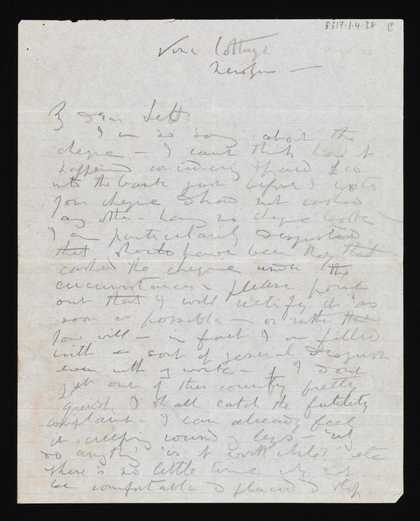 8317.1.4.38
Vine Cottage
Newlyn —
My dear Lett
I am so sorry about the
cheque — I can't think how it
happened considering I paid £20
into the bank just before I wrote
your cheque & have not cashed
any other — having no cheque book —
I am particularly disgusted
that should have been they that
cashed the cheque under the
circumstances — please point
out that I will rectify it as
soon as possible — or rather that
you will — in fact I am filled
with a sort of general disgust
even with my work — if I don't
get out of this country pretty
quick I shall catch the futility
complaint — I can already feel
it creeping round my legs — "is
anything is it worth while" etc
there's so little time
be comfortable & placid &